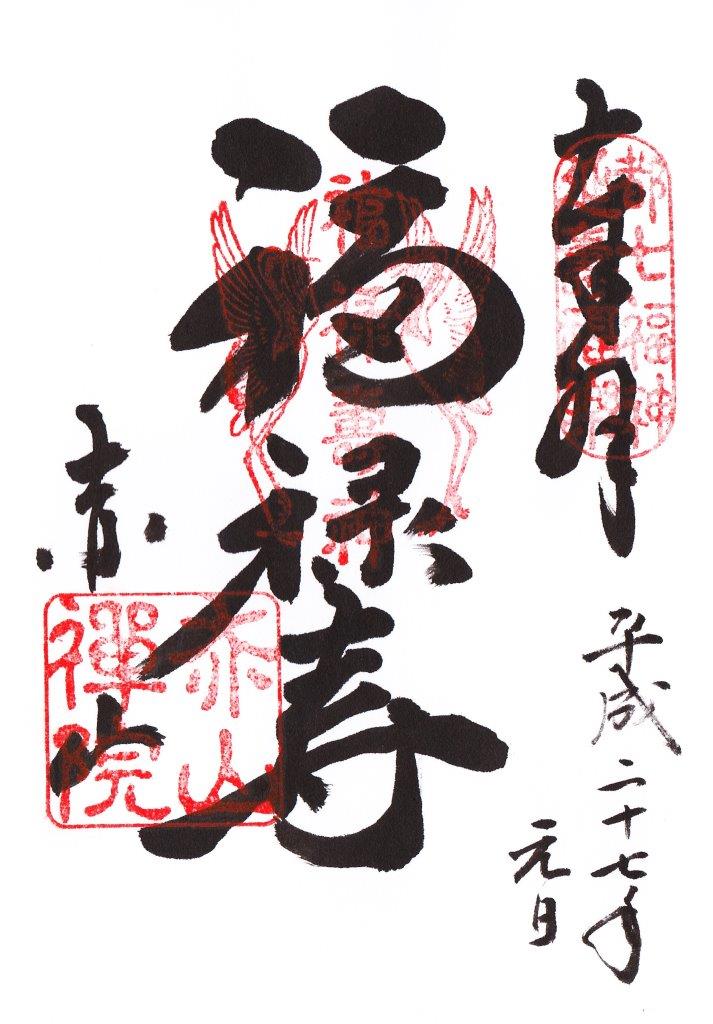 都七福神
平成二十七年
元日
福禄寿
赤山
赤山
禪院